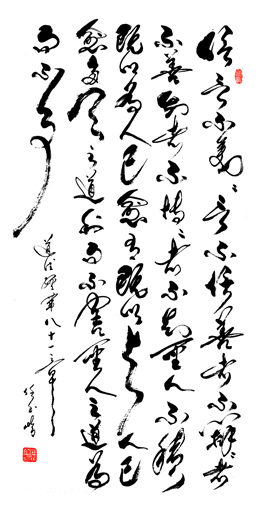 信言不美〻言不信善者不辯〻者
不善知者不博〻者不知聖人不積
既以為人己愈有既以與人己
愈多天之道利而不害聖人之道為
而不爭
道德經第八十一章